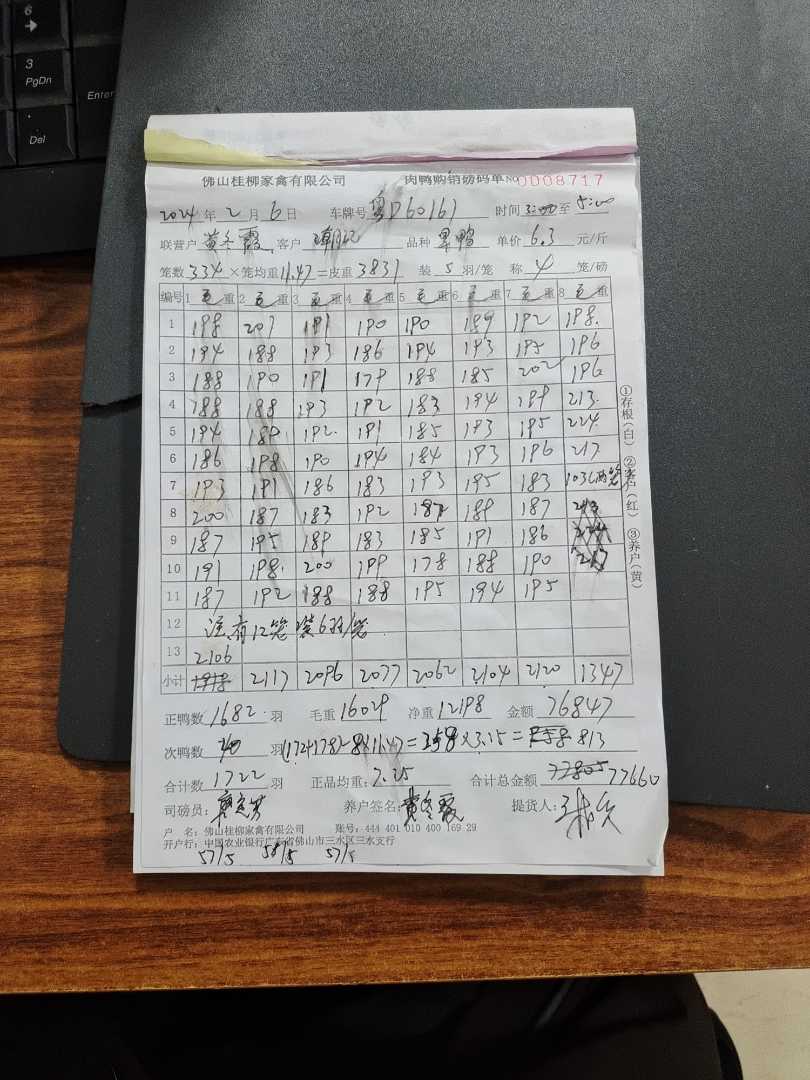 6
3
PgDn
Enter
Del
佛山桂柳家禽有限公司 肉鸭购销磅码单 No 0008717
2024年2月6日 车牌号 粤D60161 时间 3:00至5:00
联营户 黄冬霞 客户 品种 单价 6.3 元/斤
笼数 334 ×笼均重 11.47 =皮重 3831 装 5 羽/笼 称 4 笼/磅
编号 1 毛重 2 毛重 3 毛重 4 毛重 5 毛重 6 毛重 7 毛重 8 毛重
1 198 207 191 190 190 189 192 198
2 194 188 193 186 194 193 195 196
3 188 190 191 179 188 185 202 196
4 188 188 193 192 183 194 189 213
5 194 189 192 191 185 193 195 224
6 186 198 190 194 184 193 196 217
7 193 191 186 183 193 195 183 103(两笼)
8 200 187 183 192 187 189 187
9 187 195 189 183 185 191 186
10 191 198 200 199 178 188 190
11 187 192 188 188 195 194 195
12 注:有12笼装6羽/笼
13 2106
小计 2117 2096 2077 2062 2104 2120 1347
正鸭数 1682 羽 毛重 16029 净重 12198 金额 76847
次鸭数 40 羽 (172+178)-8×11.47=258×3.15= 813
合计数 1722 羽 正品均重: 7.25 合计总金额 77660
司磅员: 养户签名: 黄冬霞 提货人:
户 名: 佛山桂柳家禽有限公司 账号: 444 401 010 400 169 29
开户行: 中国农业银行广东省佛山市三水区三水支行
57/5 58/5 57/5
①存根(白) ②客户(红) ③养户(黄)